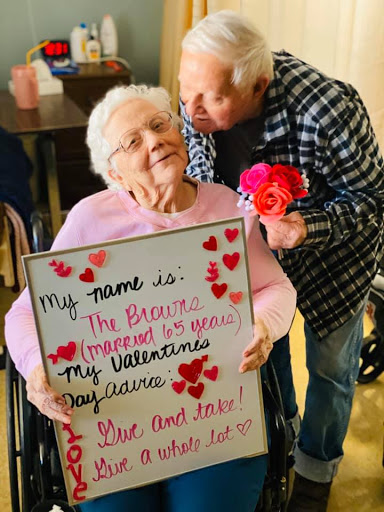 My name is:
The Browns
(married 65 years)
My Valentines
Day advice:
Give and take!
Give a whole lot ♡
LOVE